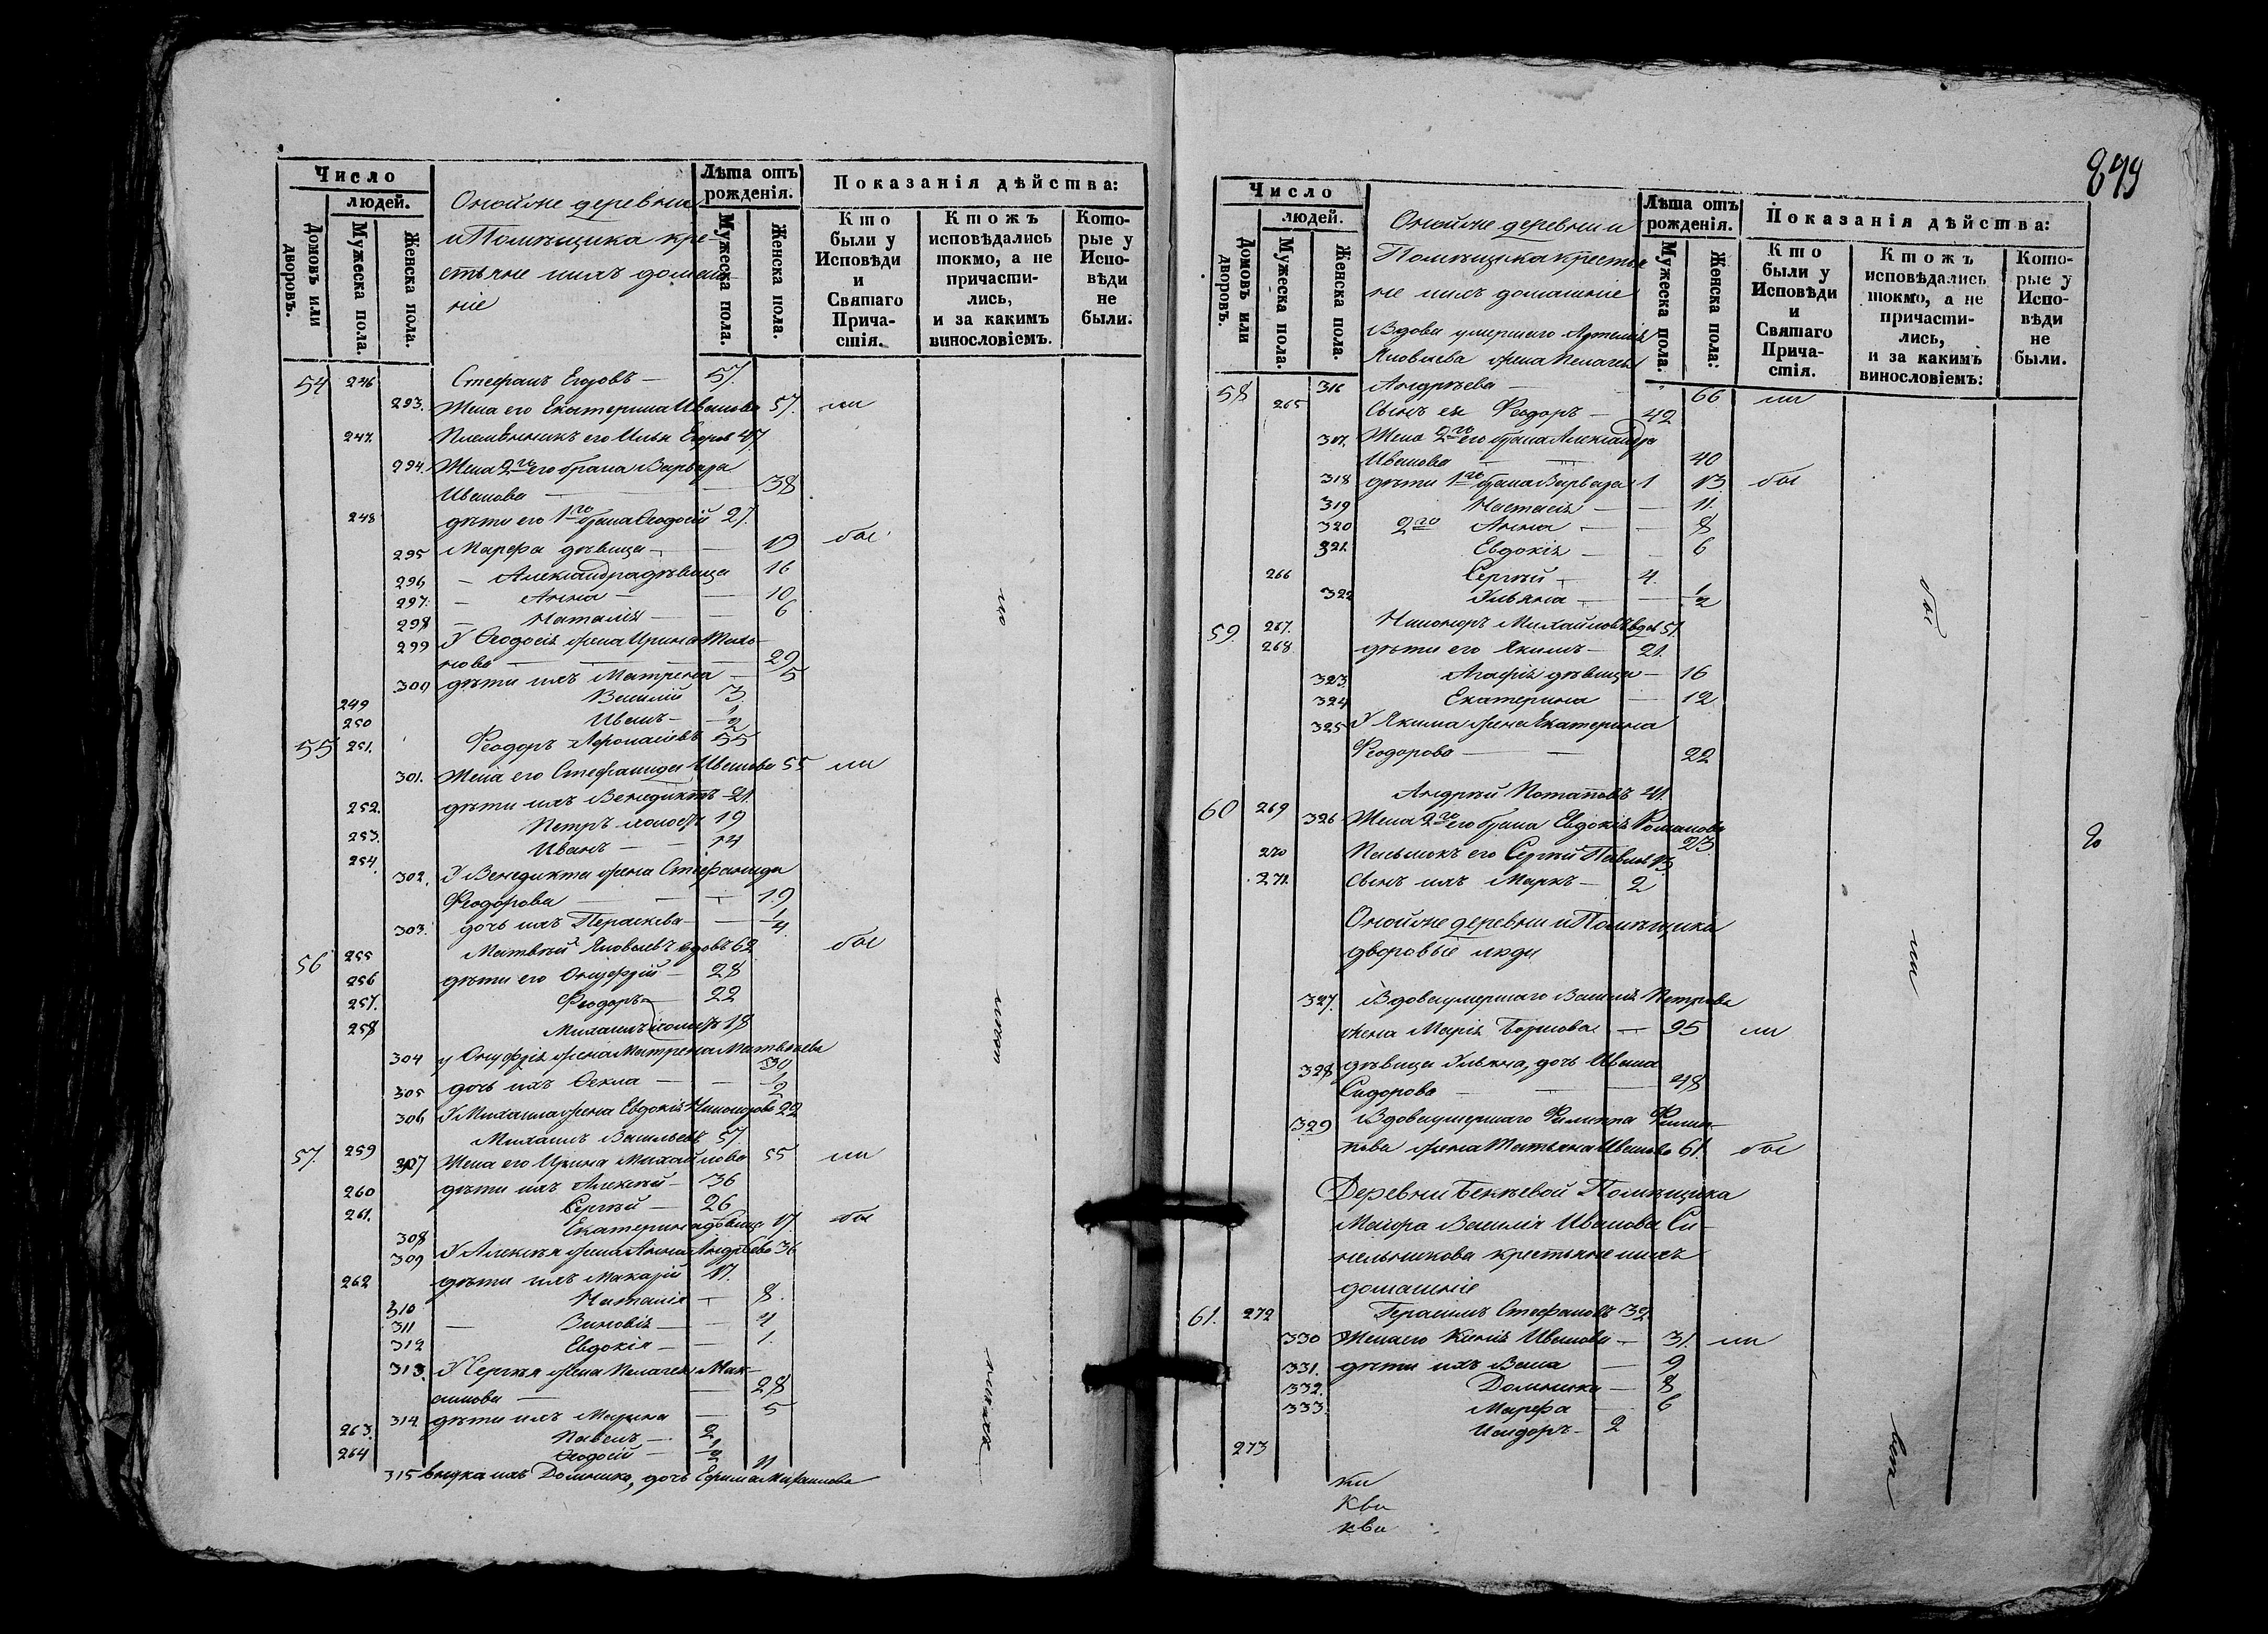 Число
людей.
Домовъ или дворовъ.
Мужеска пола.
Женска пола.
Онойже деревни
и Помѣщика кре-
стьяне и ихъ домаш-
ніе
Лѣта отъ рожденія.
Мужеска пола.
Женска пола.
Показанія дѣйства:
Кто были у Исповѣди и Святаго Прича-стія.
Ктожъ исповѣдались токмо, а не причасти-лись, и за какимъ винословіемъ.
Кото-рые у Испо-вѣди не были.
54 246 Стефанъ Егоровъ — 57.
293. Жена его Екатерина Иванова 57.
247. Племянникъ его Илья Егоров 47
294. Жена 2го его брака Варвара
Иванова — 38
248 дѣти его 1го брака Ѳеодосій 27.
295 Марѳа дѣвица — 19 бы
296 — Александра дѣвица 16
297. — Анна — 10
298 — Наталія — 6
299 У Ѳеодосія жена Ирина Тихо-
нова — 29
300 дѣти ихъ Матрена — 5
249 Василій 3.
250 Иванъ — 1/2
55 251. Феодоръ Афонасіевъ 55
301. Жена его Стефанида Иванова 55 ли
252. дѣти ихъ Венедиктъ — 21.
253. Петръ холостъ 19
254. Иванъ — 14
302. У Венедикта жена Стефанида
Феодорова — 19
303. дочь ихъ Параскева — 1/4
56 255 Матвѣй Яковлевъ вдовъ 62 бы
256 дѣти его Онуфрій — 28
257. Феодоръ — 22
258 Михаилъ холостъ 18
304 у Онуфрія жена Матрена Матвѣева
30
305 дочь ихъ Ѳекла — 1/2
306 У Михаила жена Евдокія Никонорова 22
57. 259 Михаилъ Васильевъ 57.
307 Жена его Ирина Михайлова 55 ли
260 дѣти ихъ Алексѣй — 36
261. Сергѣй — 26
308 Екатерина дѣвица 17 бы
309 У Алексѣя жена Анна Андрѣева 36
262 дѣти ихъ Макарій 17.
310 Наталія — 8.
311 — Зиновія — 4
312 Евдокія — 1.
313. У Сергѣя жена Пелагея Мак-
симова — 28
314. дѣти ихъ Марина — 5
263. Павелъ — 2
264 Ѳеодосій — 1/2
11
315 внука ихъ Домника, дочь Ефима Михаилова
849
Число
людей.
Домовъ или дворовъ.
Мужеска пола.
Женска пола.
Онойже деревни и
Помѣщика крестья
не и ихъ домашніе
Лѣта отъ рожденія.
Мужеска пола.
Женска пола:
Показанія дѣйства:
Кто были у Исповѣди и Святаго Прича-стія.
Ктожъ исповѣдались токмо, а не причасти-лись, и за какимъ винословіемъ:
Кото-рые у Испо-вѣди не были.
Вдова умершаго Артемія
Яковлева жена Пелагея
58 316 Андрѣева — 66 ли
265 Сынъ ея Феодоръ — 42
317. Жена 2го его брака Александра
Иванова — 40
318 дѣти 1го брака Варвара 1 13 бы
319 Настасія — 11.
320 2го Анна — 8
321. Евдокія — 6
266 Сергѣй — 4.
322 Ульяна — 1/2
59. 267. Никоноръ Михайловъ вдов 51.
268. дѣти его Якимъ — 21.
323. Агафія дѣвица — 16
324 Екатерина — 12
325 У Якима жена Екатерина
Феодорова — 22
60 269 Андрѣй Потаповъ 41.
326 Жена 2го его брака Евдокія Романова
23.
270 Пасынокъ его Сергѣй Павлов 13
271. Сынъ ихъ Маркъ — 2
Онойже деревни и Помѣщика
дворовые люди
327. Вдова умершаго Василія Петрова
жена Марія — 95 ли
328 дѣвица Ульяна, дочь Ивана
Сидорова — 48
329 Вдова умершаго Филиппа Филип-
пова жена Татьяна Иванова 61. бы
Деревни Бекѣевой Помѣщика
Маіора Василія Иванова Си-
нельникова крестьяне и ихъ
домашніе
61. 272 Герасимъ Стефановъ 32
330 Жена его Ксенія Иванова — 31. ли
331. дѣти ихъ Васа — 9
332. Домника — 8
333. Марѳа — 6
273 Исидоръ — 2